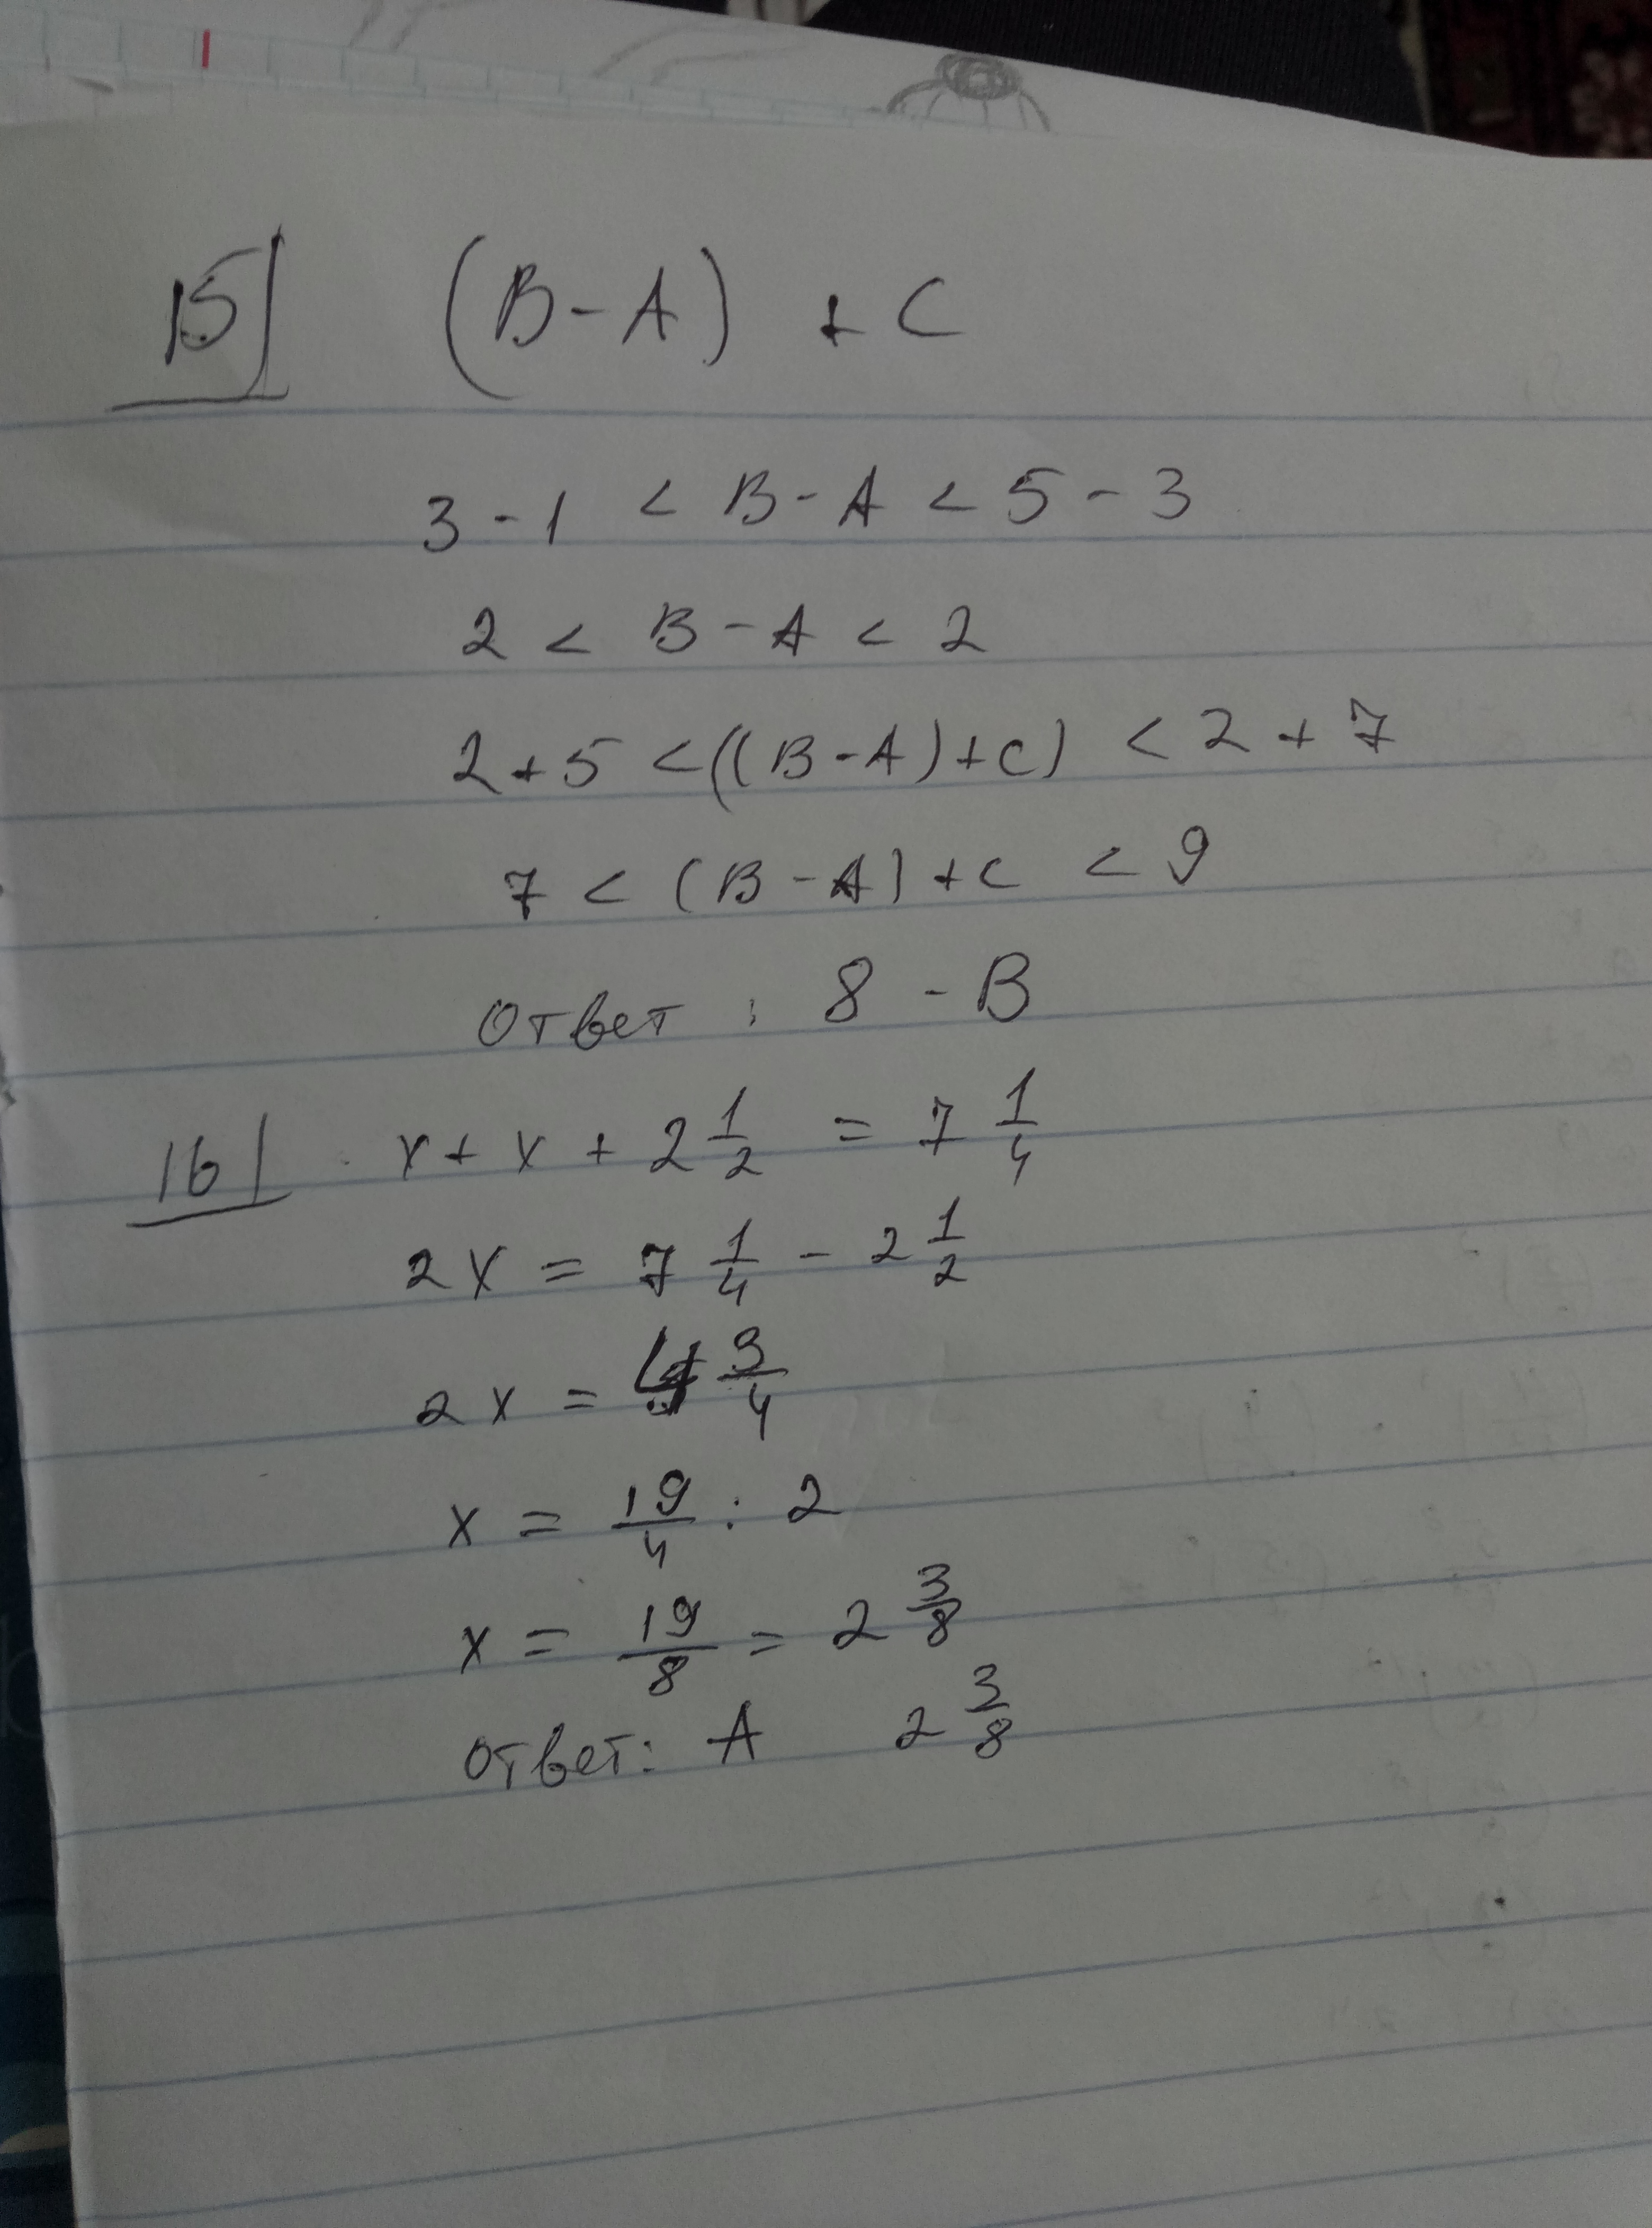 15| (B-A) + C
3 - 1 < B - A < 5 - 3
2 < B - A < 2
2 + 5 < ((B - A) + C) < 2 + 7
7 < (B - A) + C < 9
Ответ : 8 - B
16| x + x + 2 1/2 = 7 1/4
2x = 7 1/4 - 2 1/2
2x = 4 3/4
x = 19/4 : 2
x = 19/8 = 2 3/8
Ответ: A 2 3/8